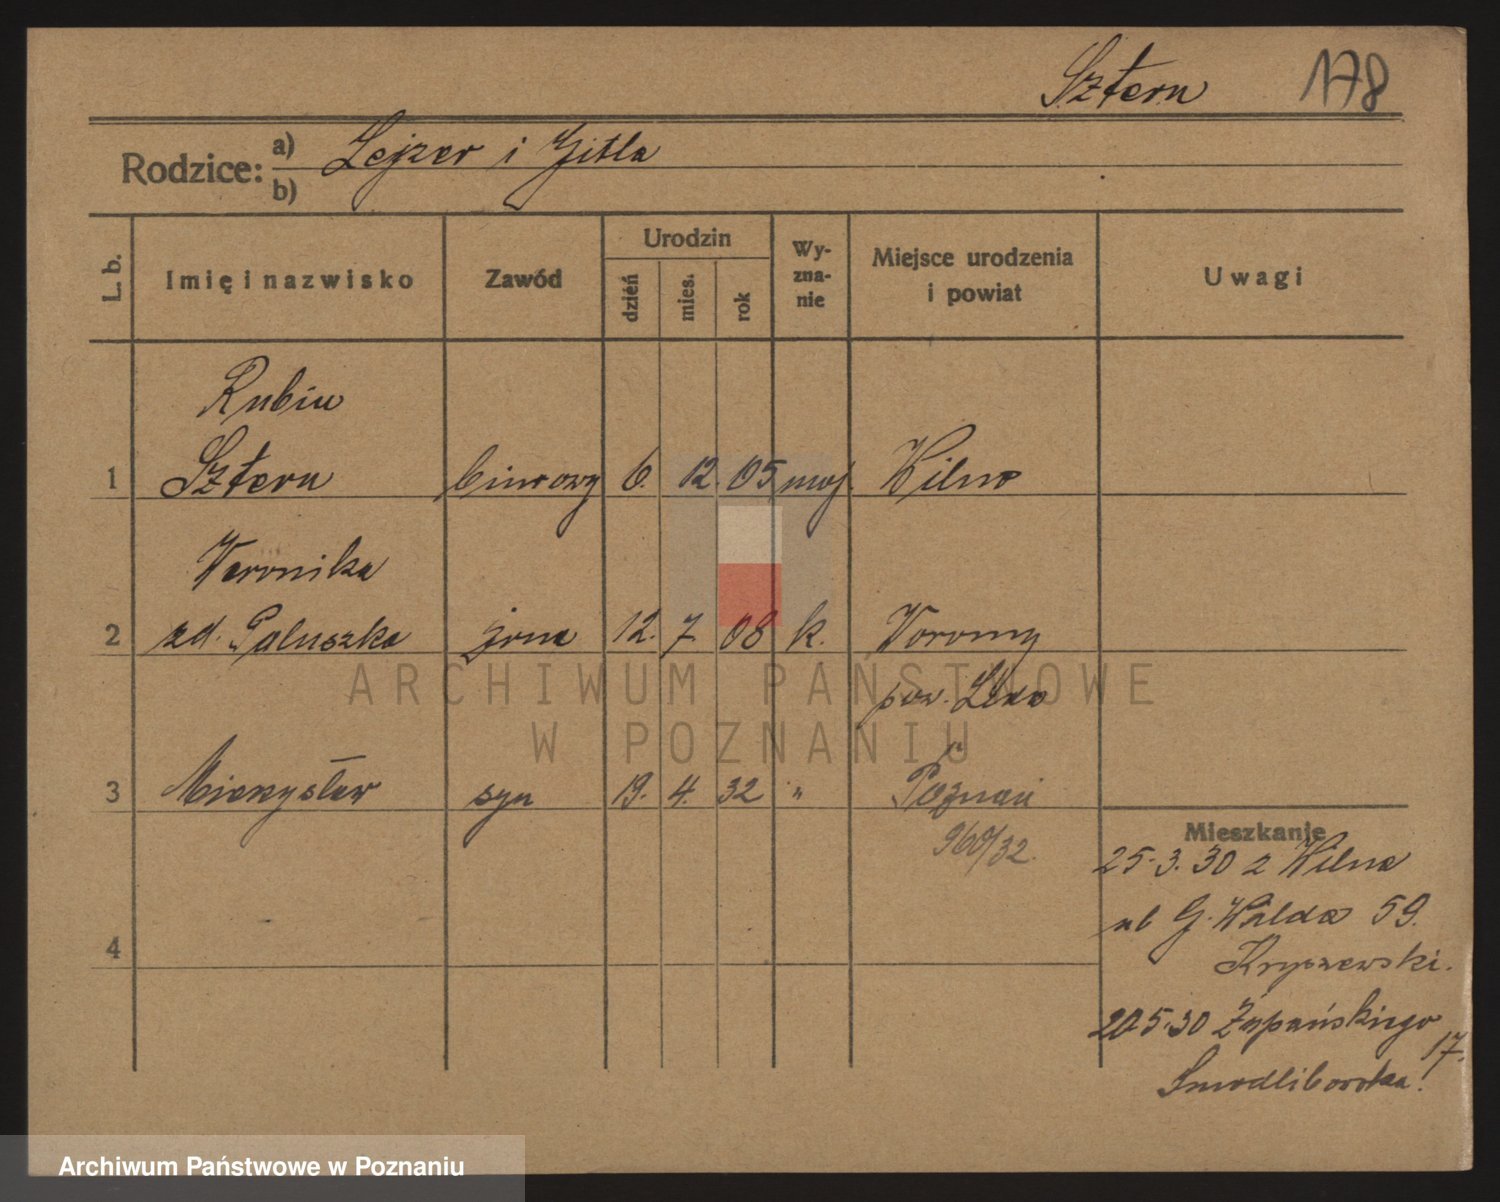 Sztern 178
Rodzice: a) Lejzer i Gitla
b)
L. b. Imię i nazwisko Zawód Urodzin dzień mies. rok Wy-zna-nie Miejsce urodzenia i powiat Uwagi
Rubin
1 Sztern biurowy 6. 12. 05 moj. Wilno
Weronika
2 zd. Paluszka żona 12. 7. 08 k. Woronny
pow. Lida
3 Mieczysław syn 19. 4. 32 " Poznań
960/32.
Mieszkanie
25.3.30 z Wilna
ul G. Walda 59.
Kryszewski.
4
20.5.30 Żupańskiego
17.
Smodlibowska.
ARCHIWUM PAŃSTWOWE
W POZNANIU
Archiwum Państwowe w Poznaniu